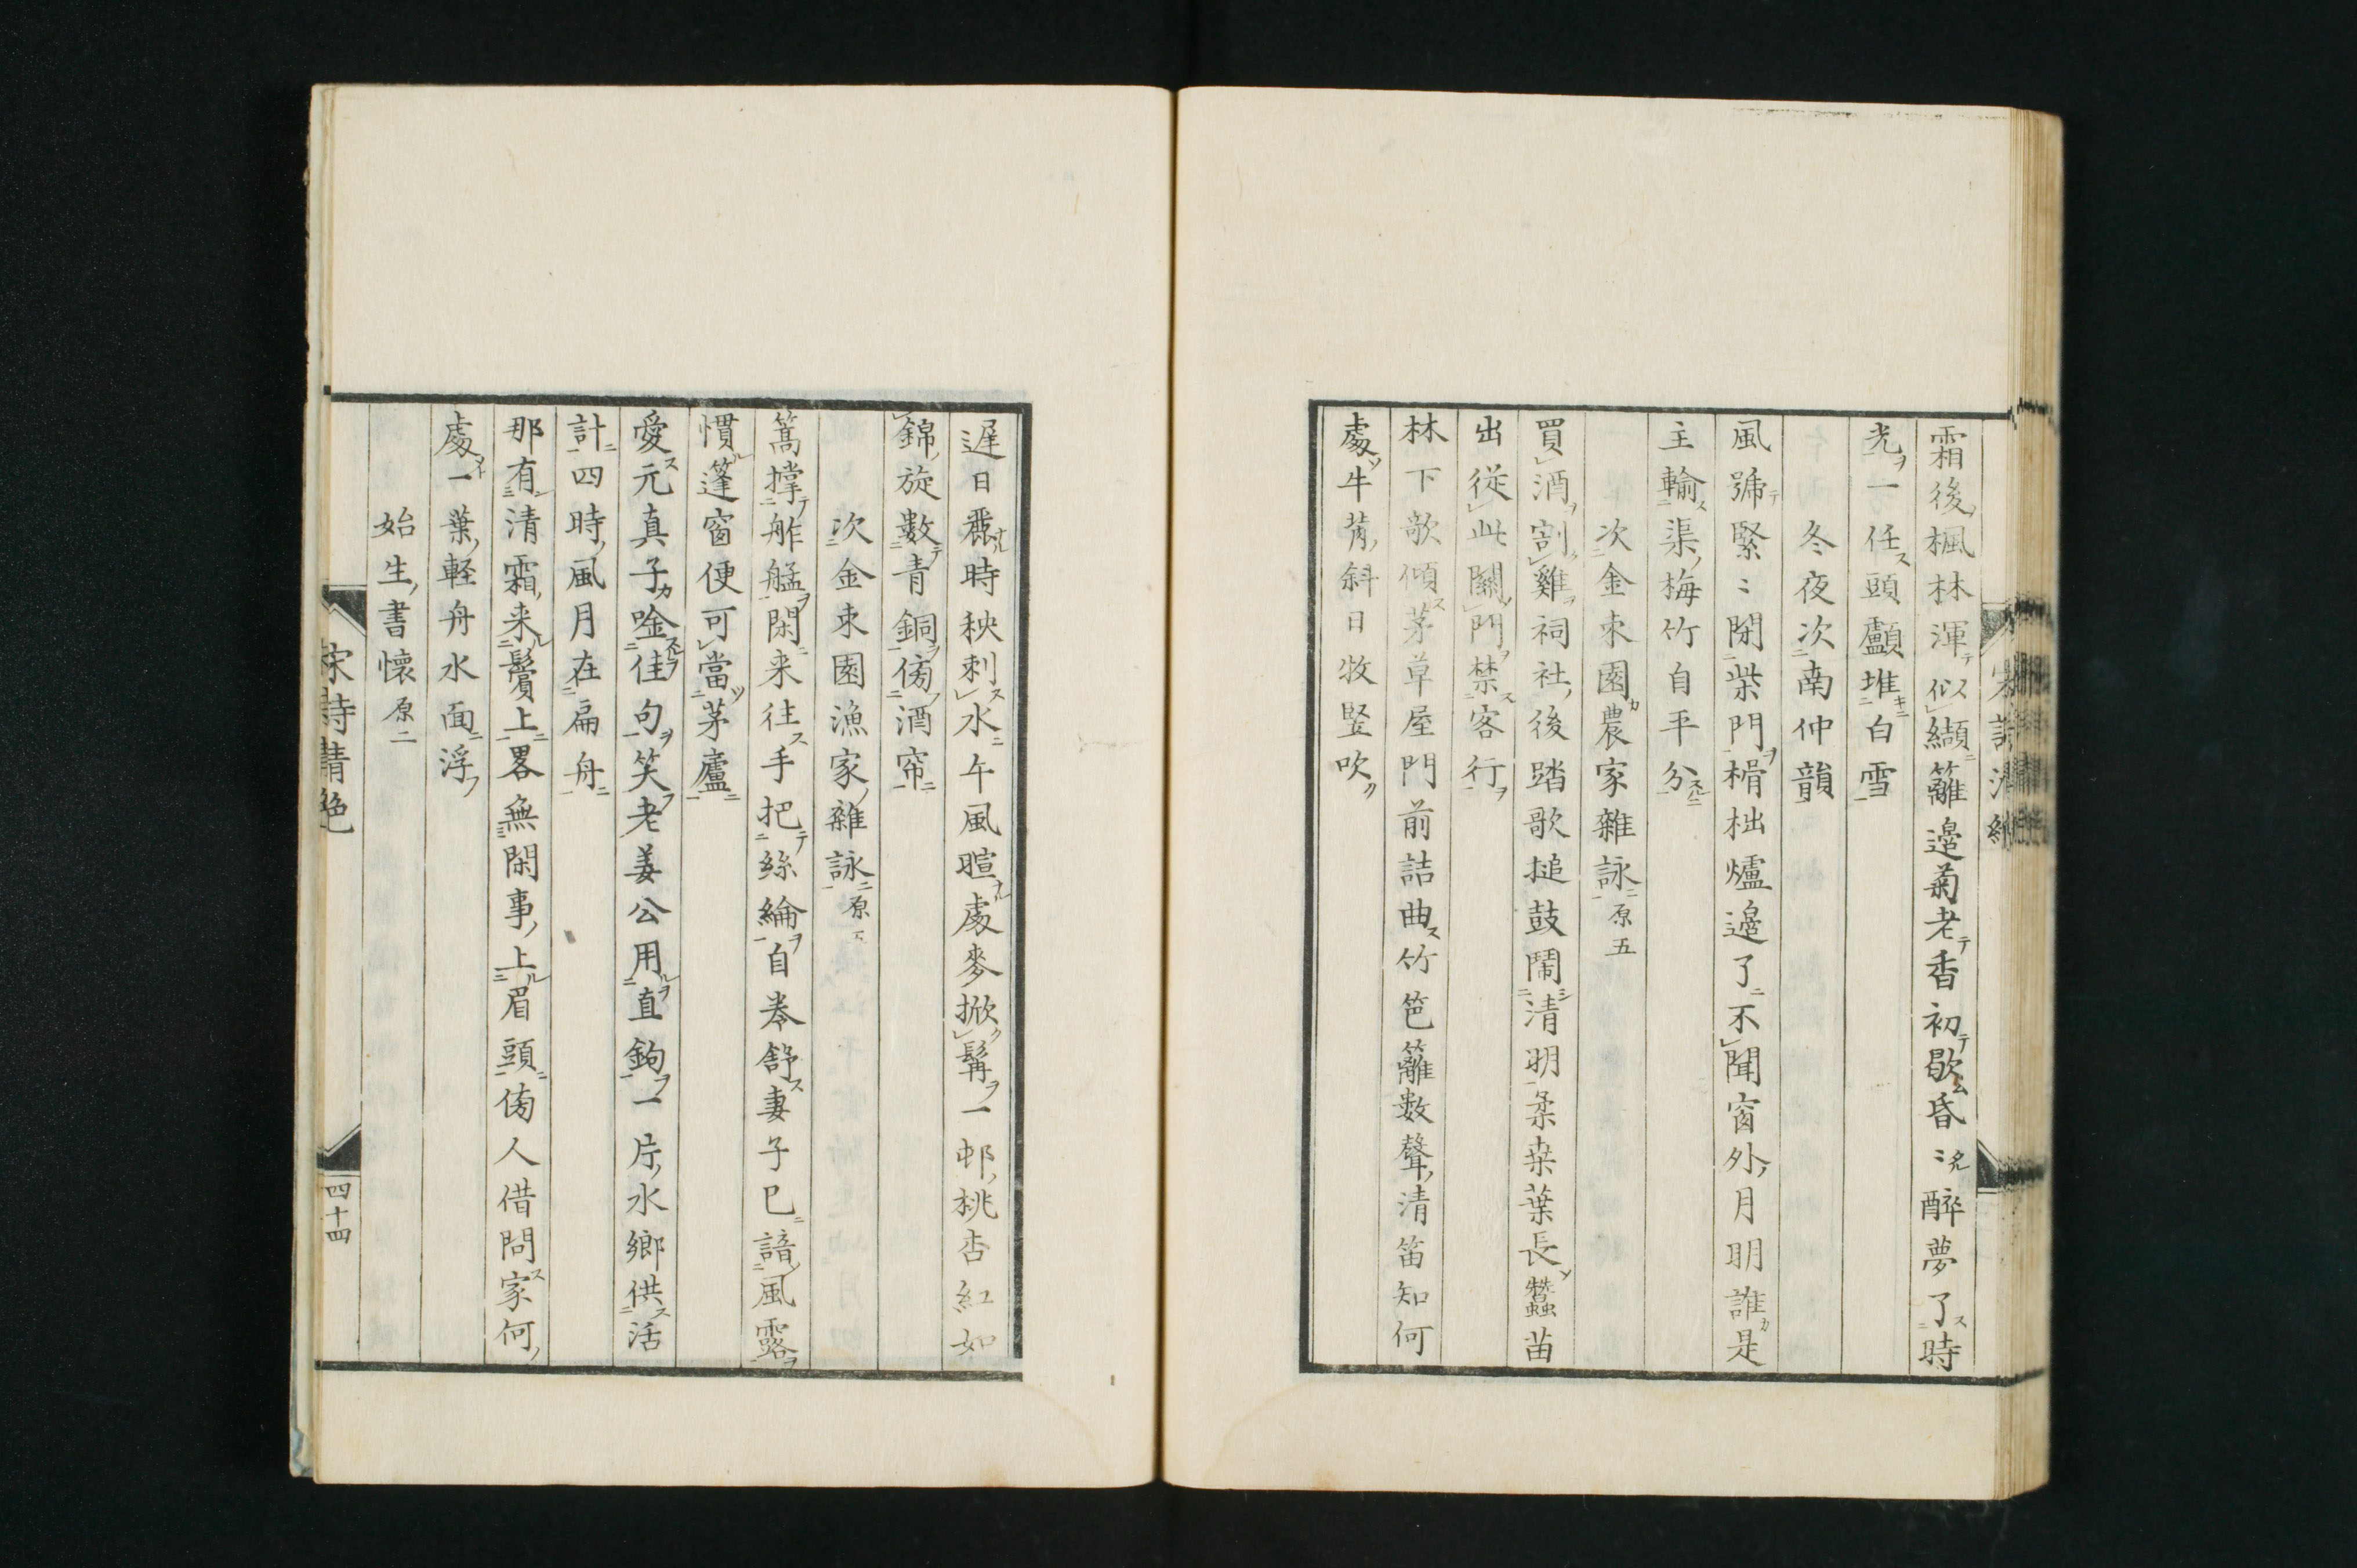 霜後楓林渾似纈籬邉菊老香初歇昏〻醉夢了時
光一任頭顱堆白雪
冬夜次南仲韻
風號緊〻閉柴門榾柮爐邉了不聞窗外月明誰是
主輸渠梅竹自平分
次金東園農家雜詠原五
買酒割雞祠社後踏歌搥鼓鬧清明柔桒葉長蠶苗
出從此關門禁客行
林下歌傾茅草屋門前詰曲竹笆籬數聲清笛知何
處牛背斜日牧豎吹
遲日烝時秧刺水午風暄處麥掀髯一邨桃杏紅如
錦旋數青銅傍酒帘
次金東園漁家雜詠原
篙撑舴艋閑来往手把絲綸自卷舒妻子已諳風露
慣篷窗便可當茅廬
愛元真子唫佳句笑老姜公用直鉤一片水鄉供活
計四時風月在扁舟
那有清霜来鬢上畧無閑事上眉頭傍人借問家何
處一葉輕舟水面浮
始生書懷原二
宋詩清絶
四十四